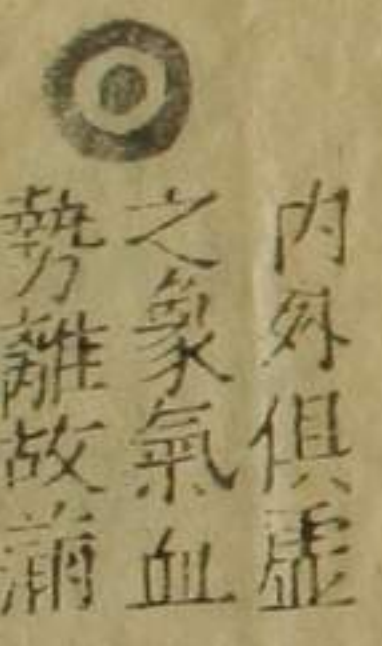 内外俱虛
之象氣血
勢離故滿